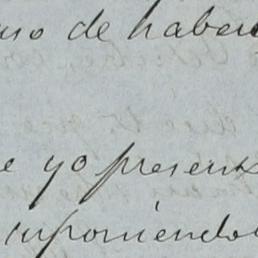 uso de haber
e yo presen
uponiéndo